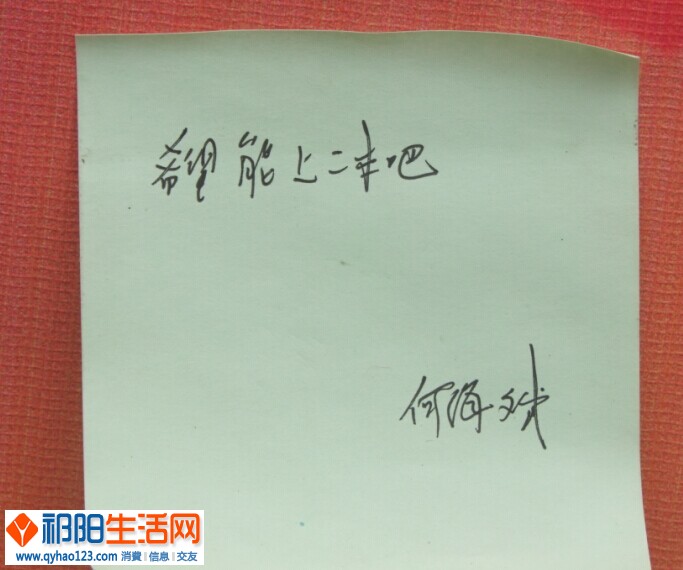 希望能上二本吧
何海斌
祁阳生活网
www.qyhao123.com 消費 | 信息 | 交友